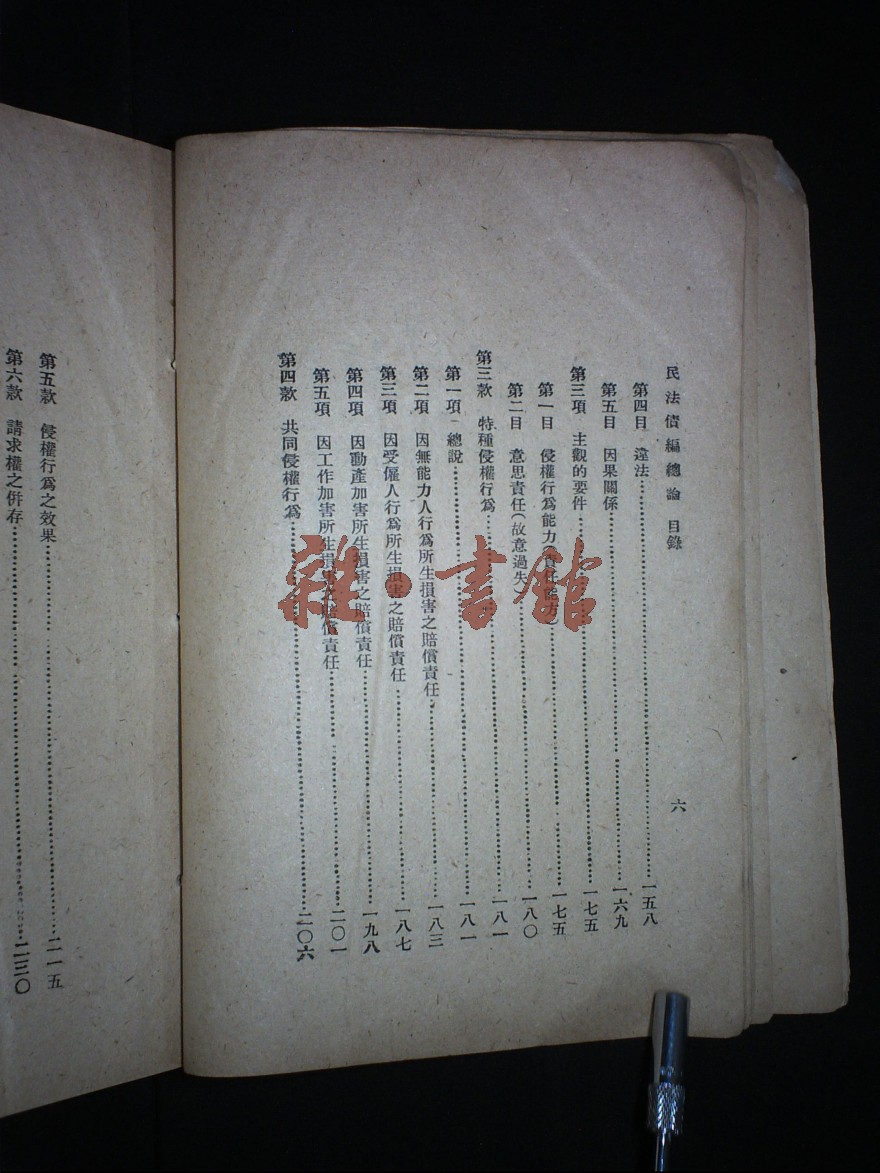 民法債編總論 目錄 六
第四目 違法 一五八
第五目 因果關係 一六九
第三項 主觀的要件 一七五
第一目 侵權行爲能力(責任能力) 一七五
第二目 意思責任(故意過失) 一八〇
第三款 特種侵權行爲 一八一
第一項 總說 一八一
第二項 因無能力人行爲所生損害之賠償責任 一八三
第三項 因受僱人行爲所生損害之賠償責任 一八七
第四項 因動產加害所生損害之賠償責任 一九八
第五項 因工作加害所生損害之賠償責任 二〇一
第四款 共同侵權行爲 二〇六
第五款 侵權行爲之效果 二一五
第六款 請求權之併存 二三〇
雜·書館